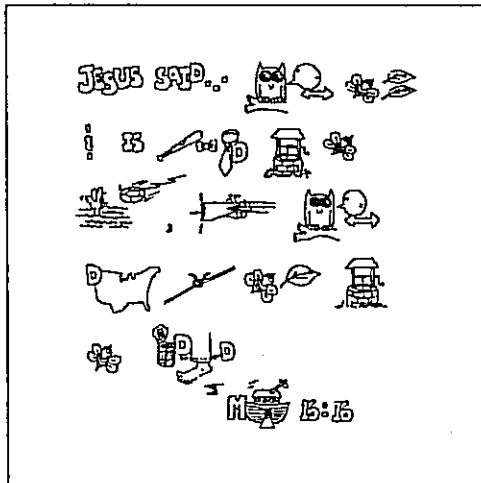 JESUS SAID...
IS D
,
D
D D
M 16:16